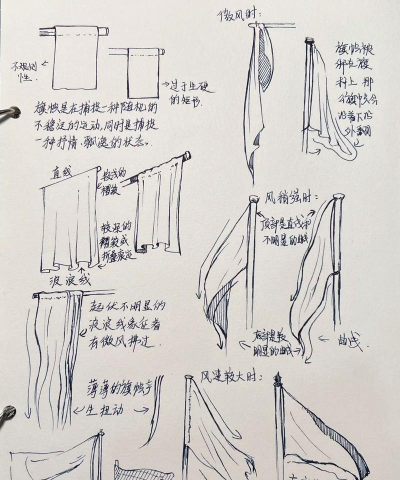 不规则
性.
过于生硬
的矩形.
旗帜是在捕捉一种随机的
不稳定的运动,同时是捕捉
一种抒情、飘逸的状态。
直线
较浅的
褶皱
较深的
褶皱或
折叠痕迹
波浪线
起伏不明显的
波浪线象征着
有微风拂过.
薄薄的旗帜
生扭动
微风时:
旗帜被
绑在旗
杆上 那
外翻
风稍强时:
顶部是直线和
不明显的曲线
底部是较
明显的曲线
曲线.
风速较大时: